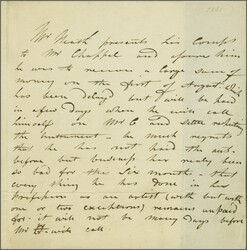 1841
Mr Meash presents his Compts
to Mr Chappel and assures him
he was to receive a large sum of
money on the first of August. It
has been delayd but will be paid
in a few days when he will call
himself on Mr C and settle respecting
the Instrument - he much regrets
that he has not paid the
before but business has realy been
so bad for the Six months - that
every thing he has done in his
Profession as an artist (with but with
one or two exceptions) remains unpaid
for - it will not be many Days before
Mr will call